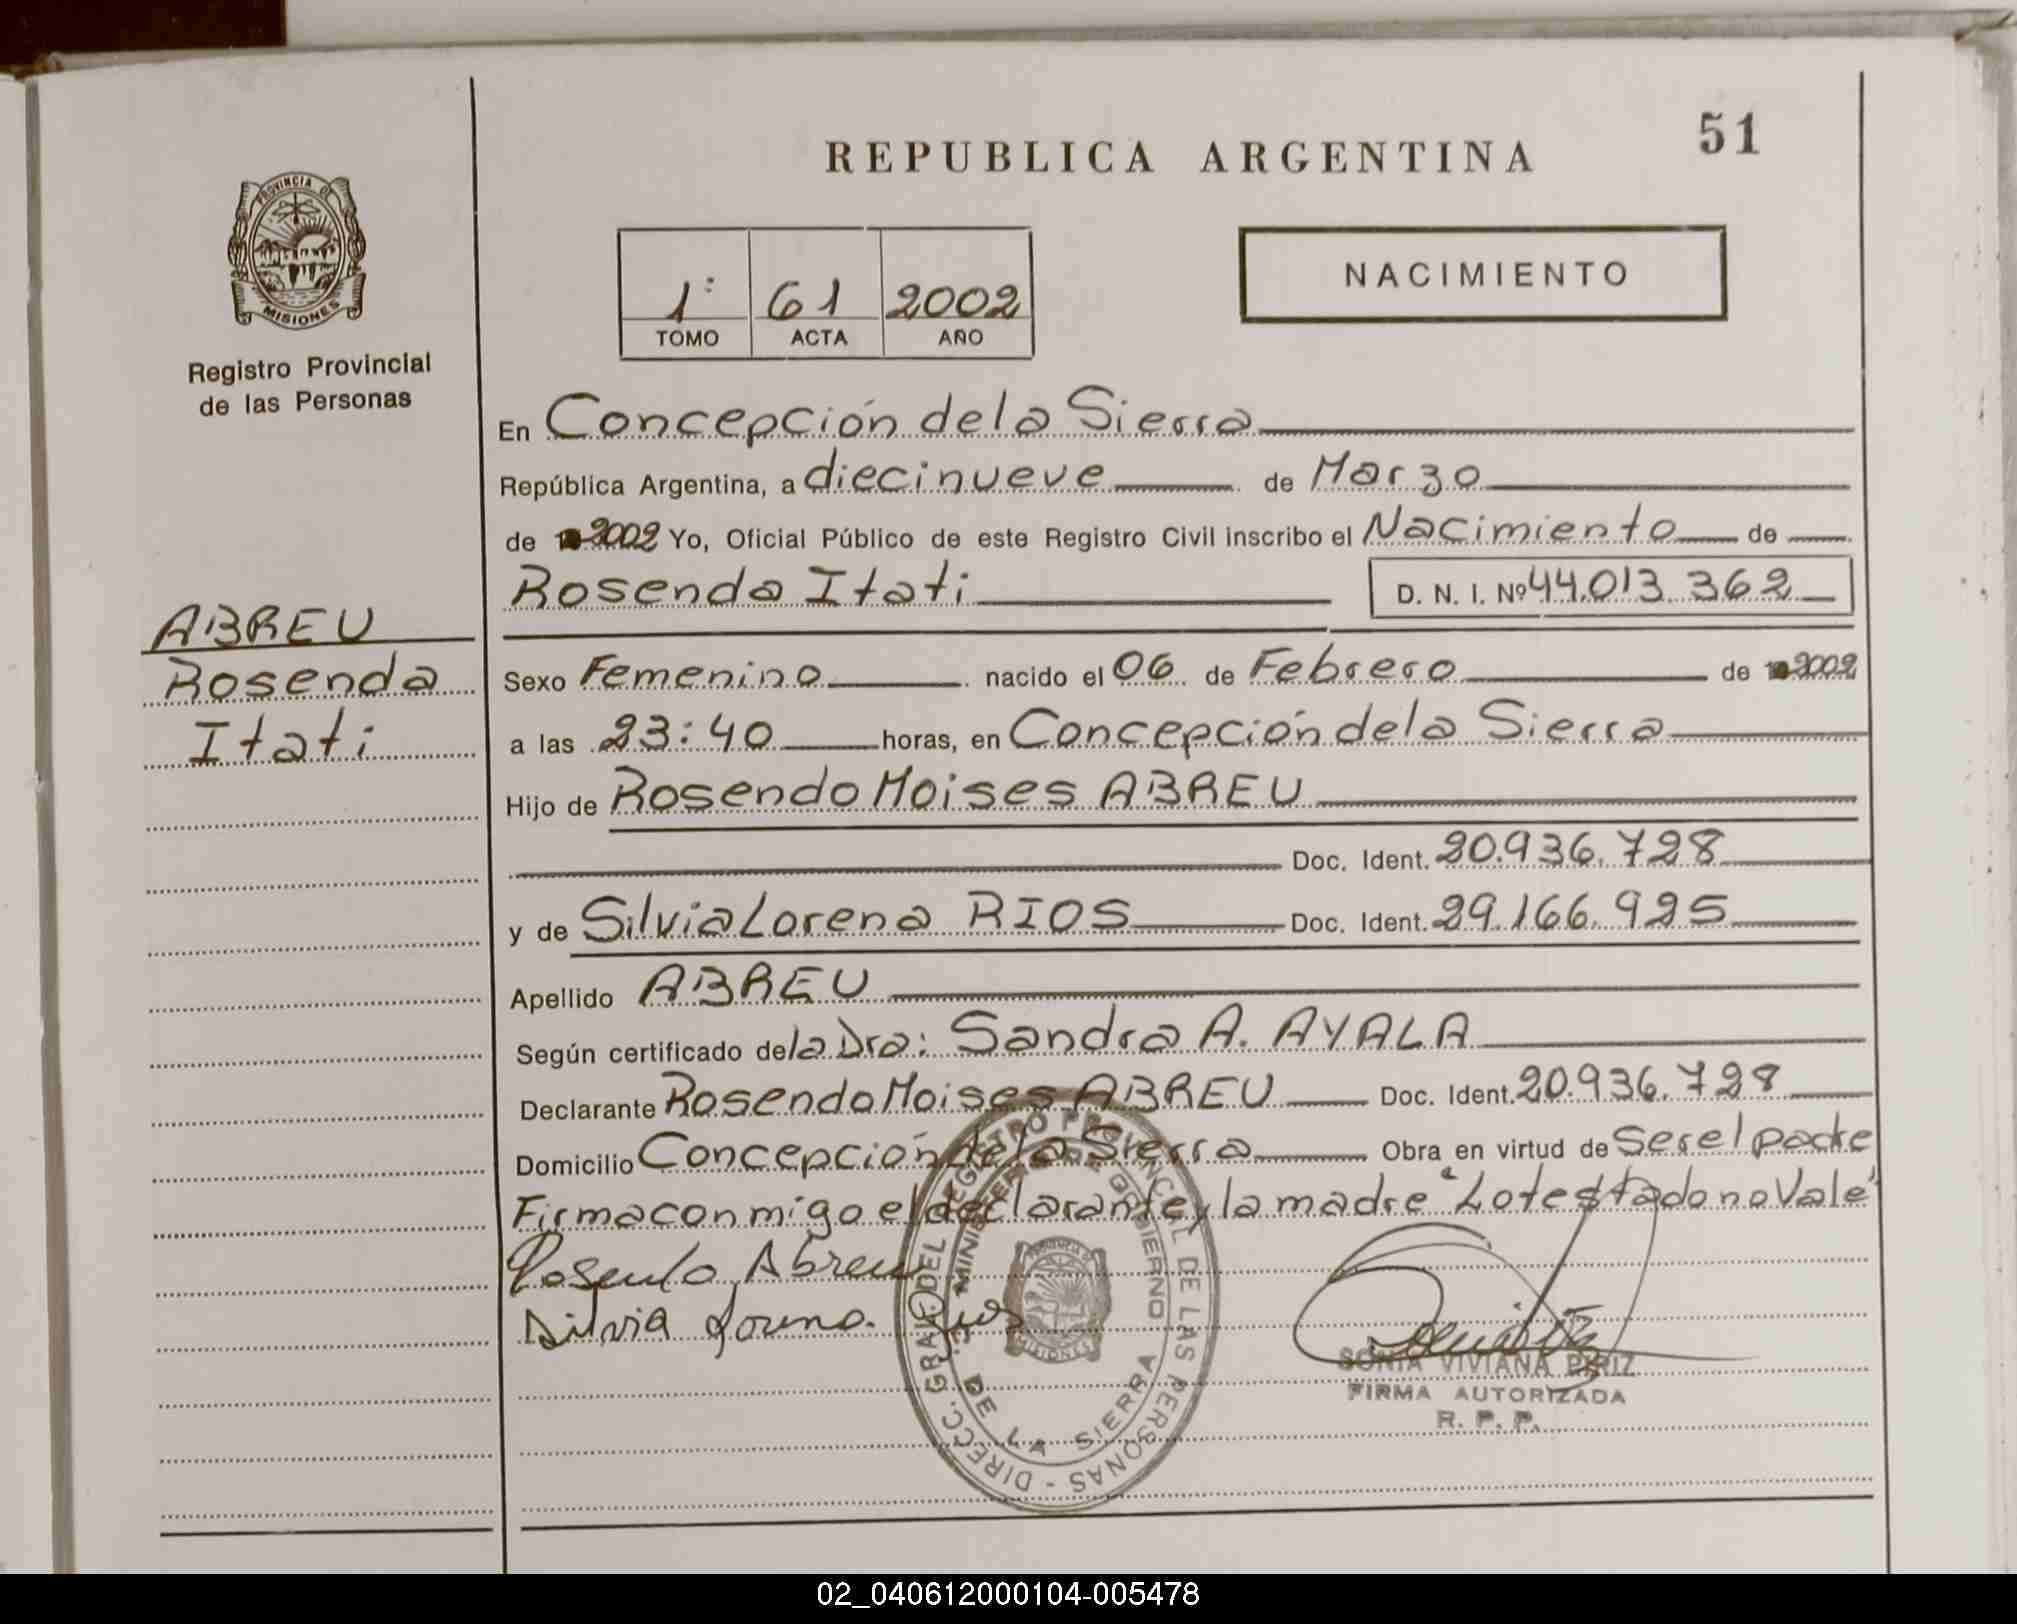 51
REPUBLICA ARGENTINA
PROVINCIA DE
MISIONES
Registro Provincial
de las Personas
1º 61 2002
TOMO ACTA AÑO
NACIMIENTO
ABREU
Rosenda
Itati
En Concepción de la Sierra
República Argentina, a diecinueve de Marzo
de 2002 Yo, Oficial Público de este Registro Civil inscribo el Nacimiento de
Rosenda Itati D. N. I. Nº 44.013.362
Sexo Femenino nacido el 06 de Febrero de 2002
a las 23:40 horas, en Concepción de la Sierra
Hijo de Rosendo Moises ABREU
Doc. Ident. 20.936.728
y de Silvia Lorena RIOS Doc. Ident. 29.166.925
Apellido ABREU
Según certificado de la Dra: Sandra A. AYALA
Declarante Rosendo Moises ABREU Doc. Ident. 20.936.728
Domicilio Concepción de la Sierra Obra en virtud de Ser el padre
Firma conmigo el declarante y la madre "Lo testado no Vale"
Rosendo Abreu
Silvia Lorena Rios
DIRECC. GRAL. DEL REGISTRO PROVINCIAL DE LAS PERSONAS -
MINISTERIO DE GOBIERNO
DE LA SIERRA
MISIONES
SONIA VIVIANA PIRIZ
FIRMA AUTORIZADA
R. P. P.
02_040612000104-005478